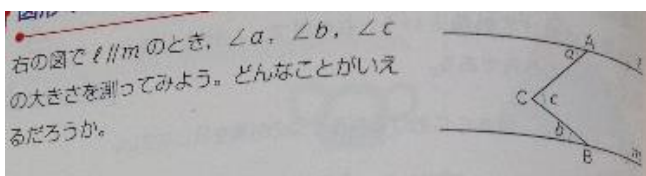 右の図でℓ//mのとき，∠a，∠b，∠c
の大きさを測ってみよう。どんなことがいえ
るだろうか。
A
a
ℓ
C
c
b
B
m